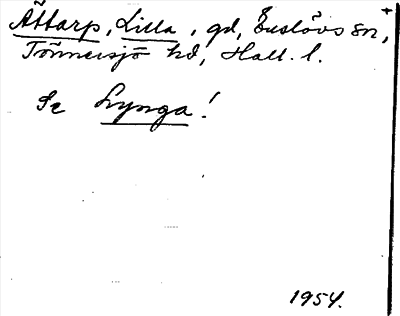 Ättarp, Lilla, gd, Euslövs sn,
Tönnersjö hd, Hall. l.
Se Lynga!
1954.